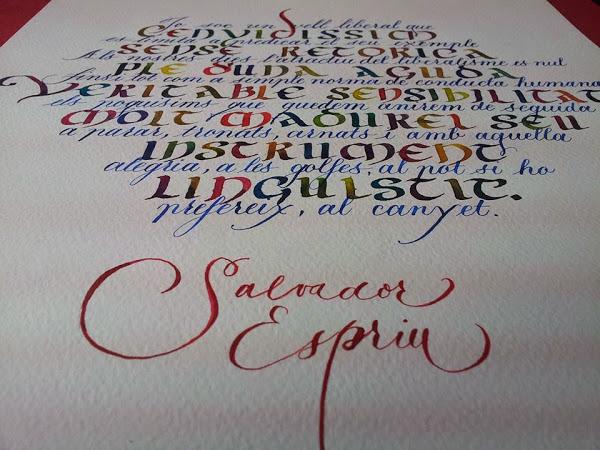 Jo soc un vell liberal que
CENYIDISSIM
es limita a predicar el seu exemple
SENSE RETORICA
Als nostres dies l'atractiu del liberalisme es nul
PLE D'UNA AGUDA
fins i tot com a simple norma de conducta humana
VERITABLE SENSIBILITAT
els poquissims que quedem anirem de seguida
MOLT MADUR EL SEU
a parar, tronats, arnats i amb aquella
INSTRUMENT
alegria, a les golfes, al pot si ho
LINGUISTIC.
prefereix, al canyet.
Salvador
Espriu